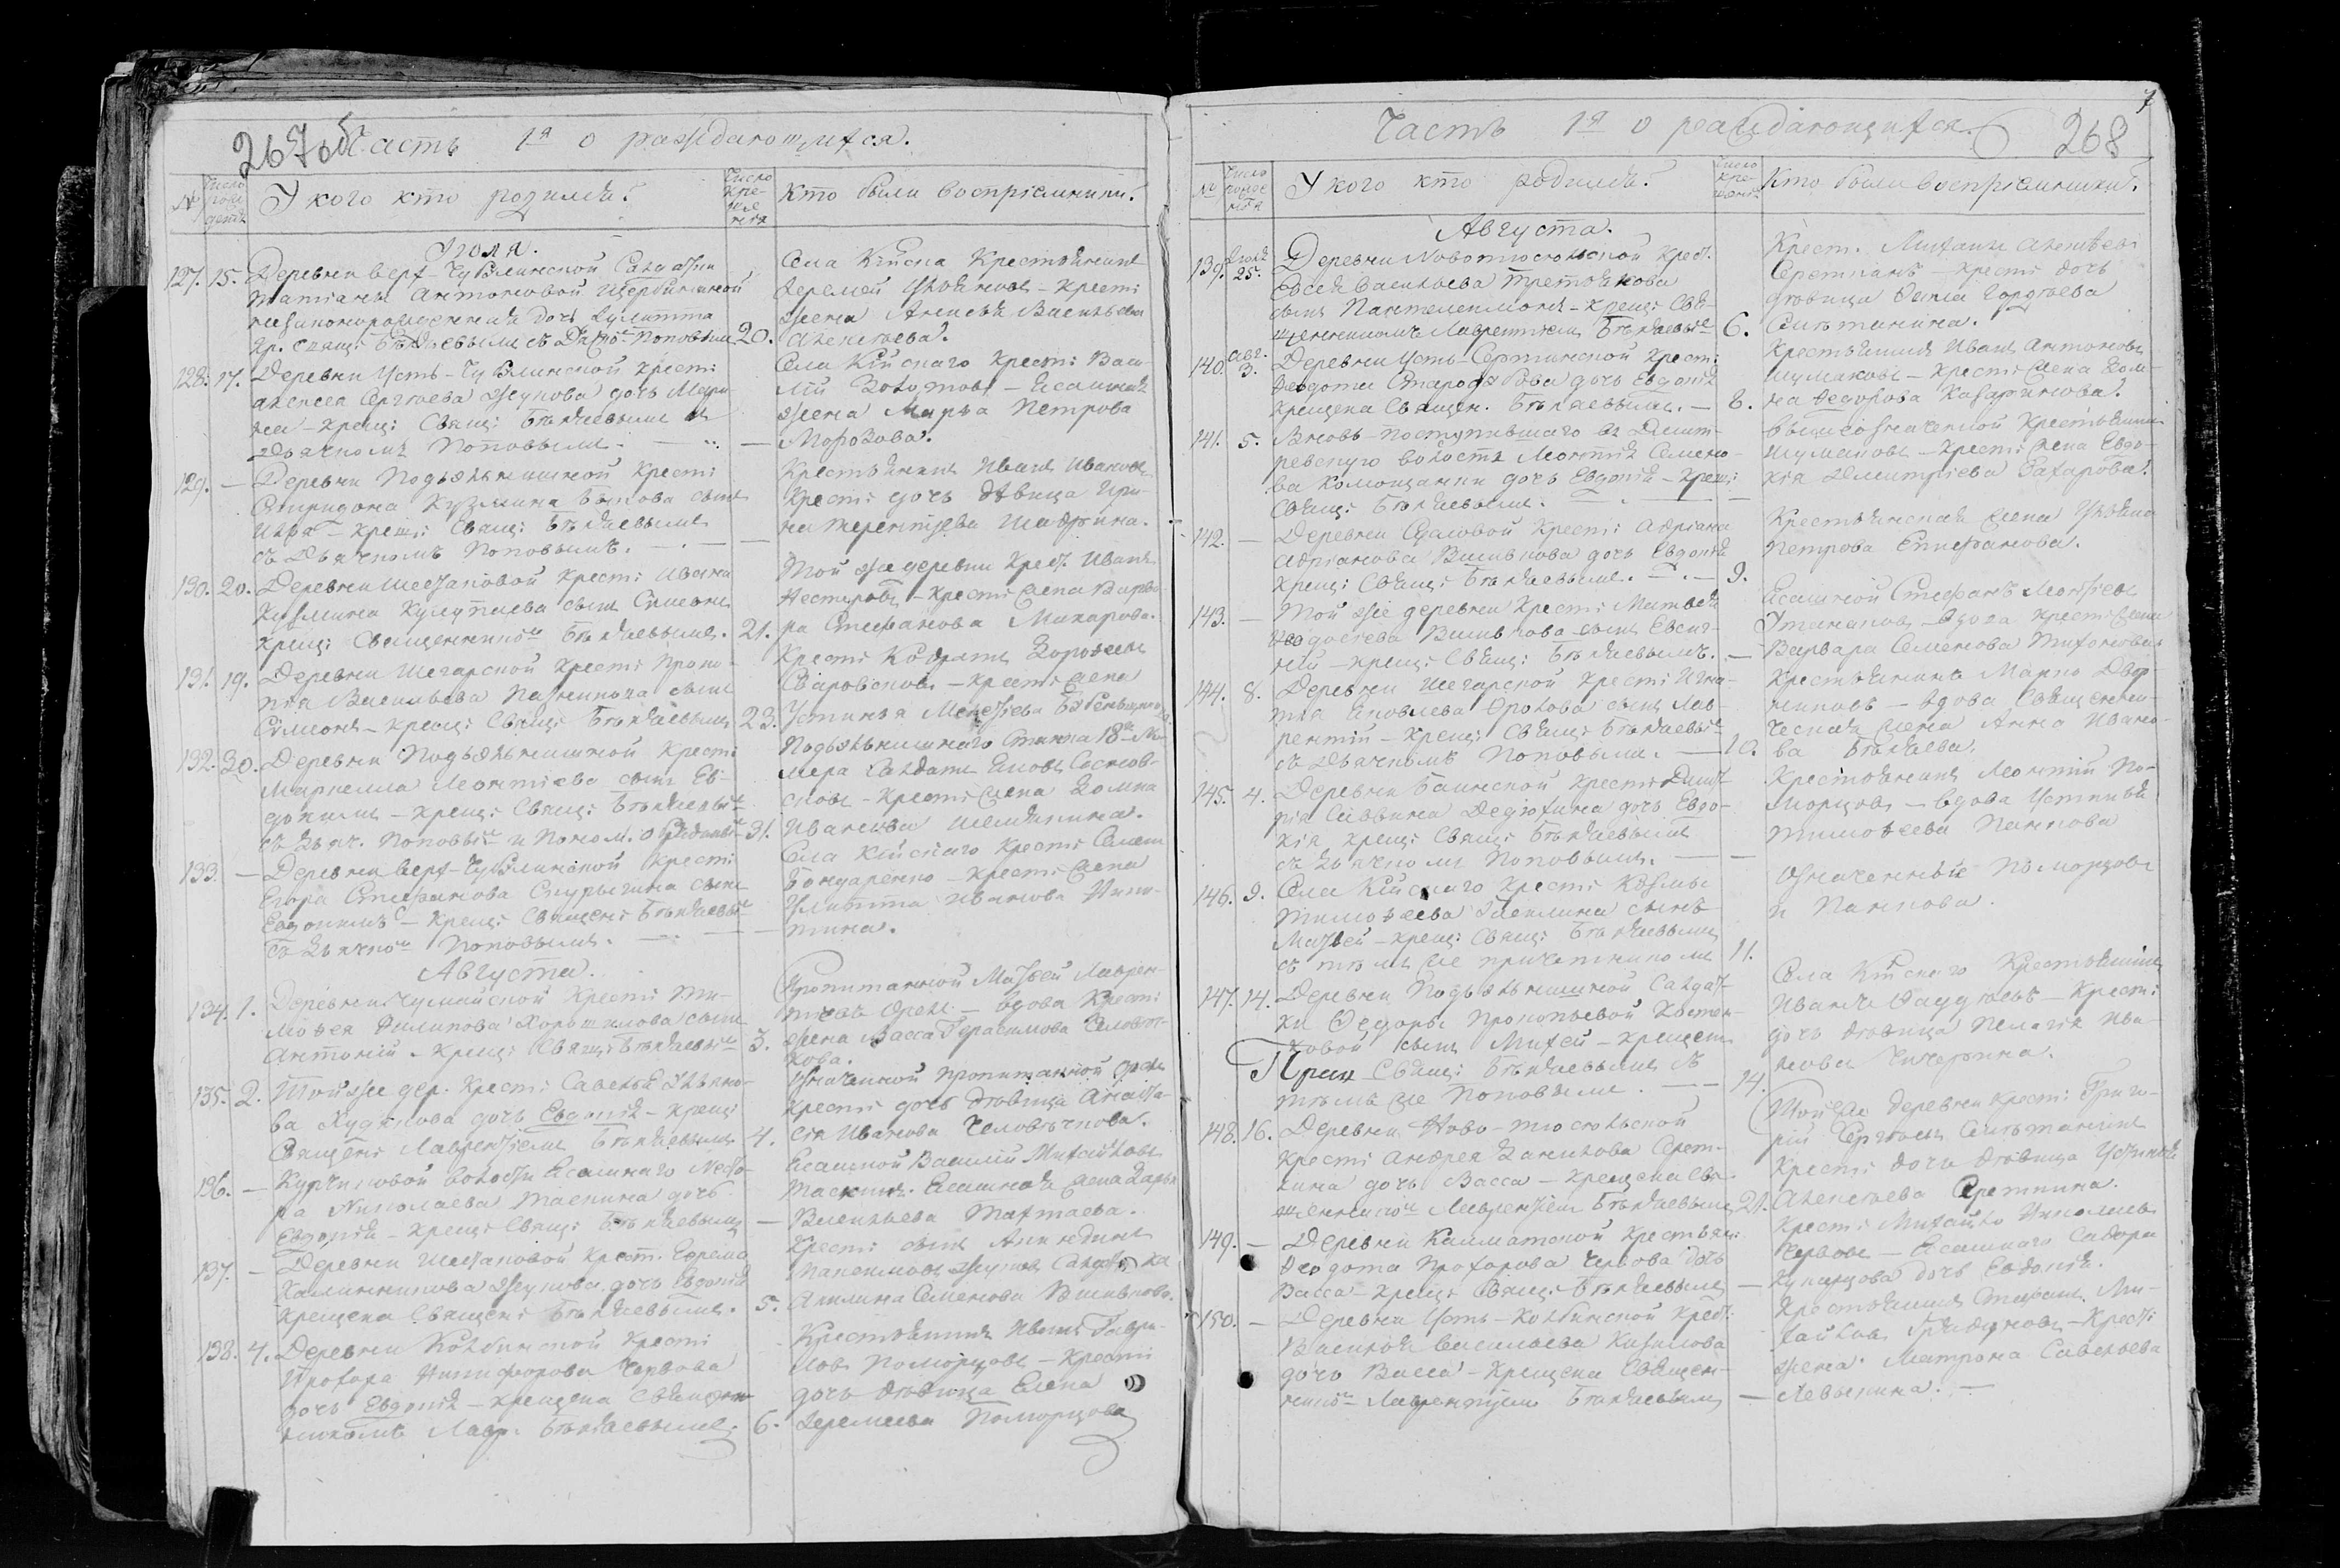 267об
Часть 1я о раждающихся.
№
Число рождения
У кого кто родился?
Число крещения
Кто были восприемники?
Іюля.
127. 15. Деревни Верх-Чубулинской Салдатки
Татіаны Антоновой Щербининой
незаконорожденная дочь Іулитта
Кр. Свящ: Бѣляевымъ съ Дьячкомъ Поповымъ 20.
Села Кійска Крестьянинъ
Іеремей Ульяновъ - Крест:
жена Анисья Васильева
Алексѣева.
128. 17. Деревни Усть-Чубулинской Крест:
Алексея Сергѣева Жунова дочь Мари
на - Крещ: Свящ: Бѣляевымъ съ
Дьячкомъ Поповымъ. —
Села Кійскаго Крест: Васи-
лій Золотовъ - Ясашная
жена Марѳа Петрова
Морозова.
129. — Деревни Подъѣльнишной Крест:
Спиридона Кузмина Быкова сынъ
Илья - Крещ: Свящ: Бѣляевымъ
съ Дьячкомъ Поповымъ. —
Крестьянинъ Иванъ Ивановъ
Крест: дочь дѣвица Ири-
на Терентьева Шадрина.
130. 20. Деревни Шестаковой Крест: Ивана
Козмина Кулупаева сынъ Симеонъ
Крещ: Священникомъ Бѣляевымъ. 21.
Той же деревни Крест: Иванъ
Нестеровъ - Крест: жена Варва-
ра Стефанова Макарова.
131. 19. Деревни Шегарской Крест: Проко-
пія Васильева сынъ
Симеонъ - Крещ: Свящ: Бѣляевымъ 23.
Крест: Кодратъ Дороѳеевъ
- Крест: жена
Устинья
132. 30. Деревни Подъѣльнишной Крест:
Маркелла Леонтіева сынъ Ев-
докимъ - Крещ: Свящ: Бѣляевымъ
съ Дьяч. Поповымъ и Поном. 31.
Подъѣльнишнаго Станка 18го Но-
мера Салдатъ
- Крест: жена Домна
Иванова
133. — Деревни Верх-Чубулинской Крест:
Егора Стефанова Скурыгина сынъ
Евдокимъ - Крещ: Священ: Бѣляевымъ
съ Дьячкомъ Поповымъ. —
Села Кійскаго Крест: Семенъ
Бондаренко - Крест: жена
Улитта Иванова Ники-
тина.
Августа.
134. 1. Деревни Чумайской Крест: Ти-
моѳея Филипова Хорошилова сынъ
Антоній - Крещ: Свящ: Бѣляевымъ 3.
Пропитанной Матвей Лаврен-
тьевъ Орелъ - вдова Крест:
жена Васса Герасимова Человеч-
кова.
135. 2. Той же дер. Крест: Савелья Ульяно-
ва Худякова дочь Евдокія - Крещ:
Священ: Лаврентіемъ Бѣляевымъ 4.
Означенной пропитанной Орелъ
Крест: дочь дѣвица Анаста-
сія Иванова Человѣчкова.
136. — волости Ясашнаго Ѳедо-
ра Николаева Таскина дочь
Евдокія - Крещ: Свящ: Бѣляевымъ —
Ясашной Василій Михайловъ
Таскинъ. Ясашная жена Дарья
Васильева Тахтаева.
137. — Деревни Шестаковой Крест. Ефрема
Калинникова Жунова дочь Евдокія
крещена Священ: Бѣляевымъ. 5.
Крест: сынъ Акиндинъ
Максимовъ Жуновъ Салдатка
Акилина Семенова Вшивкова.
138. 4. Деревни Колбинской Крест:
Прохора Никифорова Червова
дочь Евдокія - крещена Священни-
комъ Лавр. Бѣляевымъ. 6.
Крестьянинъ Иванъ Гаври-
ловъ Поморцовъ - Крест:
дочь дѣвица Елена
Іеремеева Поморцова
7
268
Часть 1я о раждающихся.
№
Число рожденія
У кого кто родился?
Число крещенія
Кто были воспріемники?
Августа.
139. Іюля 25. Деревни Новотюсюльской Крест.
Евсея Васильева Третьякова
сынъ Пантелеимонъ - Крещ: Свя-
щенникомъ Лаврентіемъ Бѣляевымъ 6.
Крест. Михаилъ Алексѣевъ
Серетканъ - Крест: дочь
дѣвица Фекла Гордѣева
Султанина.
140. Авг. 3. Деревни Усть-Сертинской Крест:
Ѳеодота Старосѣкова дочь Евдокія
крещена Священ. Бѣляевымъ. — 8.
Крестьянинъ Иванъ Антоновъ
Шумаковъ - Крест: жена Дом-
на Ѳедорова Казаринова.
141. 5. Вновь-поступившаго въ Дмит-
ревскую волость Леонтія Семено-
ва дочь Евдокія - Крещ:
Свящ: Бѣляевымъ. —
Вышеозначенной Крестьянинъ
Шумаковъ - Крест: жена Евдо-
кія Дмитріева Захарова.
142. — Деревни Сдаловой Крест: Адріана
Адріанова Вшивкова дочь Евдокія
Крещ: Свящ: Бѣляевымъ. — 9.
Крестьянская жена Ульяна
Петрова Епифанова.
143. — Той же деревни Крест: Матвея
Ѳеодосіева Вшивкова сынъ Евсиг-
ній - Крещ: Свящ: Бѣляевымъ. —
Ясашной Стефанъ Леонтіевъ
- вдова Крест: жена
Варвара Семенова Тихонова
144. 8. Деревни Шегарской Крест: Игна-
тія Яковлева Орлова сынъ Лав-
рентій - Крещ: Свящ: Бѣляевымъ
съ Дьячкомъ Поповымъ. — 10.
Крестьянинъ Марко Двор-
никовъ - вдова Священни-
ческая жена Анна Ивано-
ва Бѣляева.
145. 4. Деревни Баимской Крест: Дмит-
рія Саввина Дедюхина дочь Евдо-
кія Крещ: Свящ: Бѣляевымъ
съ Дьячкомъ Поповымъ. —
Крестьянинъ Леонтій По-
морцовъ - вдова Устинья
Тимоѳеева Панкова
146. 9. Села Кійскаго Крест: Козмы
Тимоѳеева сынъ
Матвей - Крещ: Свящ: Бѣляевымъ
съ тѣмъ же причетникомъ 11.
Означенный Поморцовъ
и Панкова.
147. 14. Деревни Подъѣльнишной Салдат-
ки Ѳедоры Прокопьевой
сынъ Михей - крещенъ
Свящ: Бѣляевымъ съ
тѣмъ же Поповымъ. — 14.
Села Кійскаго Крестьянинъ
Иванъ Фаддѣевъ - Крест:
дочь дѣвица Пелагія Ива-
нова Чичерина.
148. 16. Деревни Ново-тюсюльской
Крест: Андрея Данилова Серет-
кина дочь Васса - Крещена Свя-
щенникомъ Лаврентіемъ Бѣляевымъ 21.
Той же деревни Крест: Григо-
рій Сергѣевъ Султанинъ
Крест: дочь дѣвица Устинья
Алексѣева Сереткина.
149. — Деревни Калматской Крестьян:
Ѳеодота Прохорова Червова дочь
Васса - Крещ: Свящ: Бѣляевымъ —
Крест: Михайло Николаевъ
Червовъ - Ясашнаго Сидора
дочь Евдокія.
150. — Деревни Усть-Колбинской Крест:
Василья Васильева Казакова
дочь Васса - Крещена Священ-
никомъ Лаврентіемъ Бѣляевымъ —
Крестьянинъ Стефанъ Ми-
хайловъ - Крест:
жена Матрона Савельева
Левыкина. —